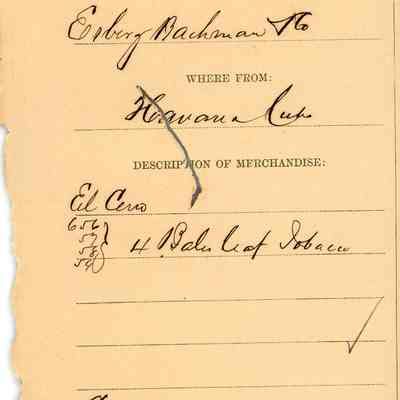 Esberg Bachman & Co
WHERE FROM:
Havana Cuba
DESCRIPTION OF MERCHANDISE:
El Cerro
656
57
58
59
4 Bales leaf Tobacco